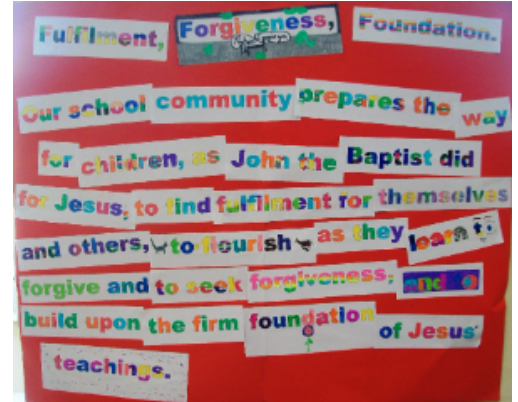 Fulfilment, Forgiveness, Foundation.
Our school community prepares the way
for children, as John the Baptist did
for Jesus, to find fulfilment for themselves
and others, to flourish as they learn to
forgive and to seek forgiveness; and to
build upon the firm foundation of Jesus'
teachings.